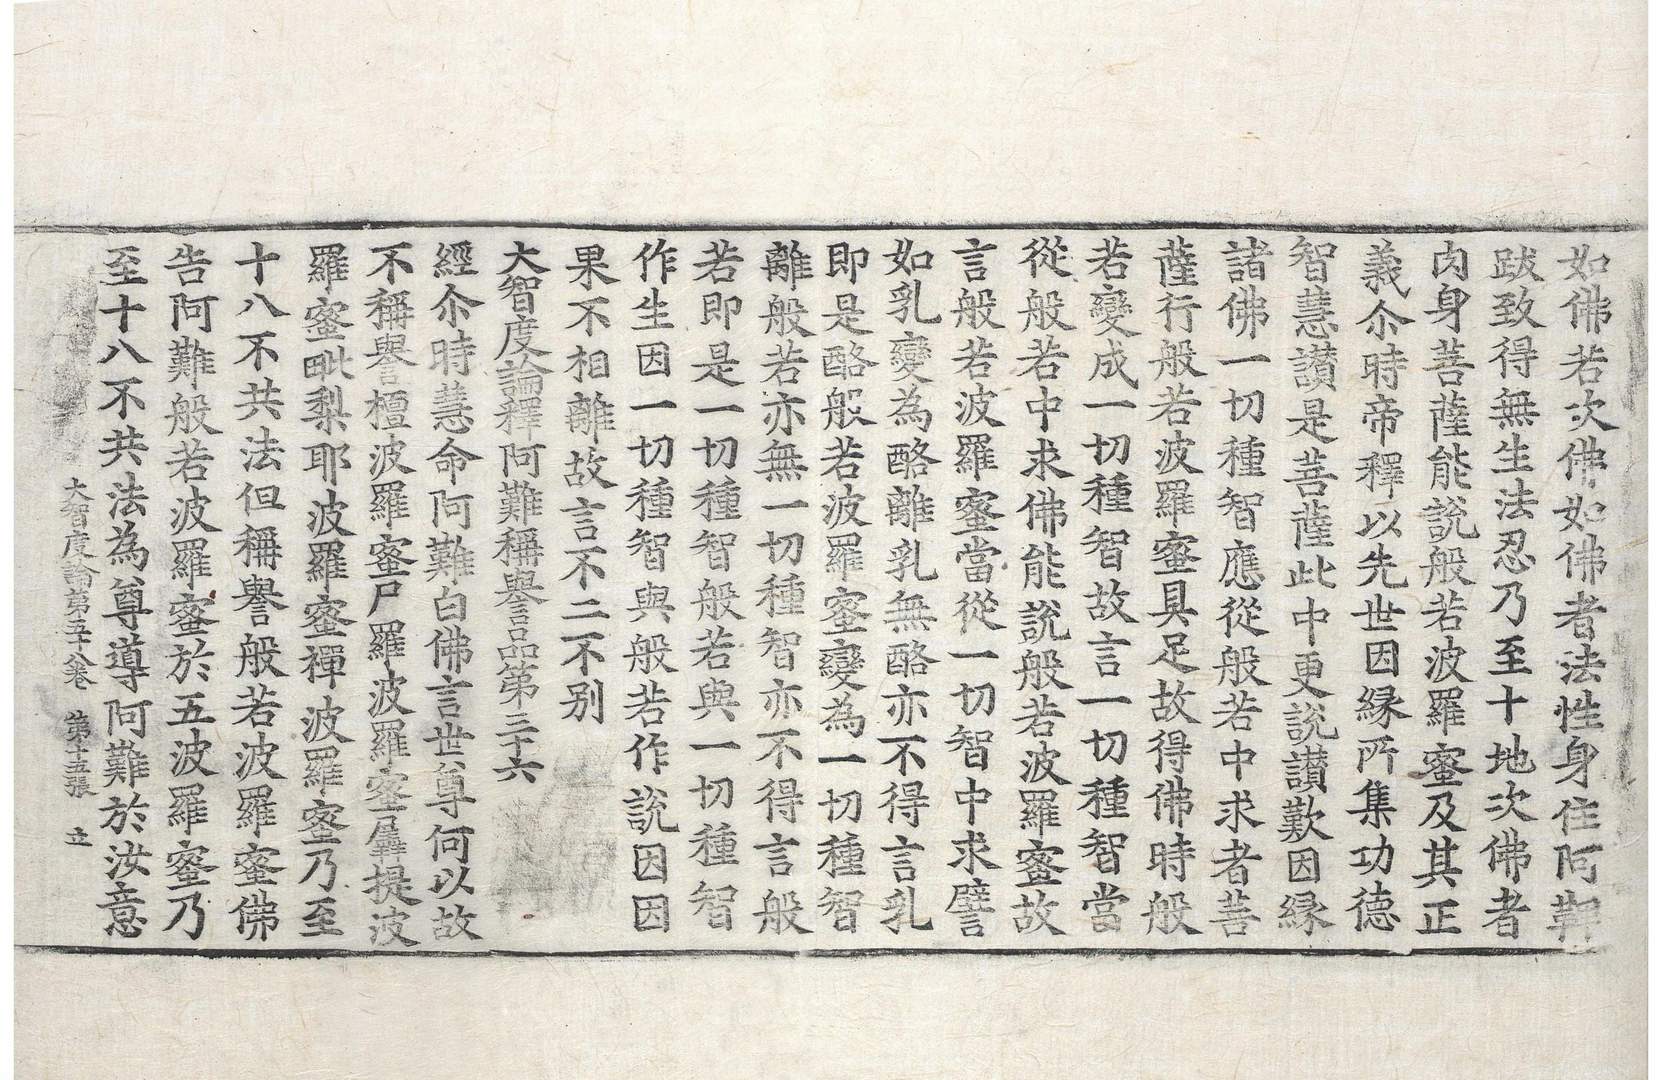 如佛若次佛如佛者法性身住阿鞞
跋致得無生法忍乃至十地次佛者
肉身菩薩能說般若波羅蜜及其正
義尒時帝釋以先世因緣所集功德
智慧讃是菩薩此中更說讃歎因緣
諸佛一切種智應從般若中求者菩
薩行般若波羅蜜具足故得佛時般
若變成一切種智故言一切種智當
從般若中求佛能說般若波羅蜜故
言般若波羅蜜當從一切智中求譬
如乳變為酪離乳無酪亦不得言乳
即是酪般若波羅蜜變為一切種智
離般若亦無一切種智亦不得言般
若即是一切種智般若與一切種智
作生因一切種智與般若作說因因
果不相離故言不二不別
大智度論釋阿難稱譽品第三十六
經尒時慧命阿難白佛言世尊何以故
不稱譽檀波羅蜜尸羅波羅蜜羼提波
羅蜜毗梨耶波羅蜜禪波羅蜜乃至
十八不共法但稱譽般若波羅蜜佛
告阿難般若波羅蜜於五波羅蜜乃
至十八不共法為尊導阿難於汝意
大智度論第五十八卷 第十五張 立